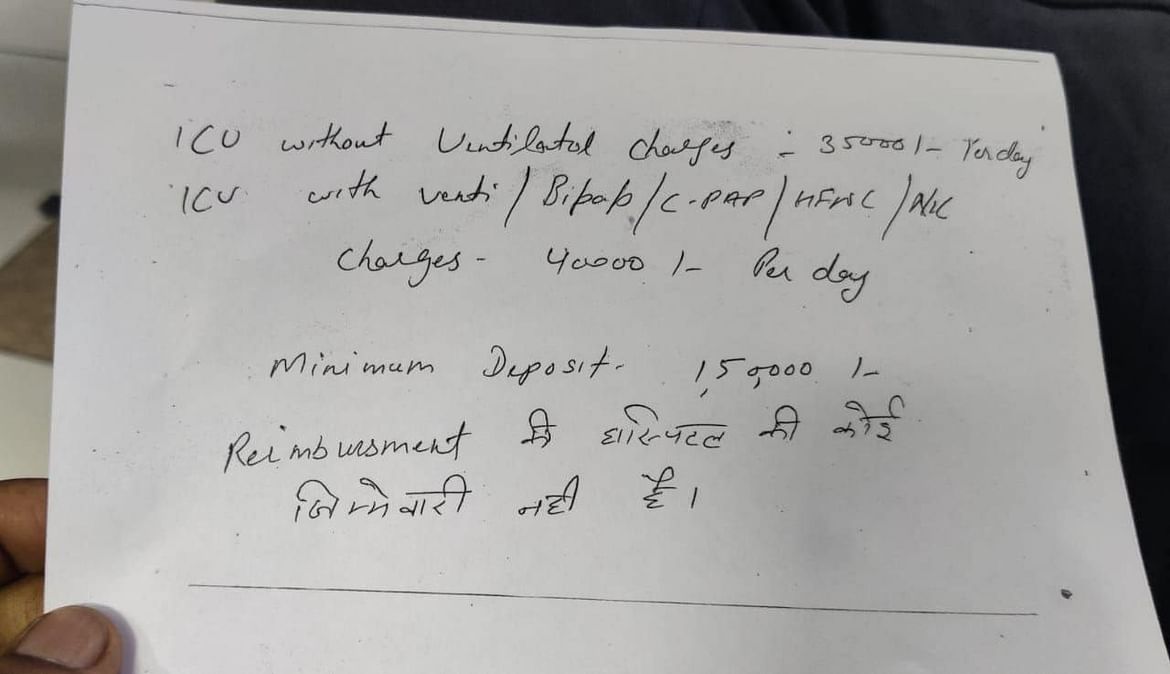 ICU without Ventilator charges :- 35000/- Per day
ICU with venti/Bipap/C-PAP/HFNC/NIV
charges - 40000/- Per day
Minimum Deposit- 1,50,000/-
Reimbursment की हास्पिटल की कोई
जिम्मेवारी नही है।